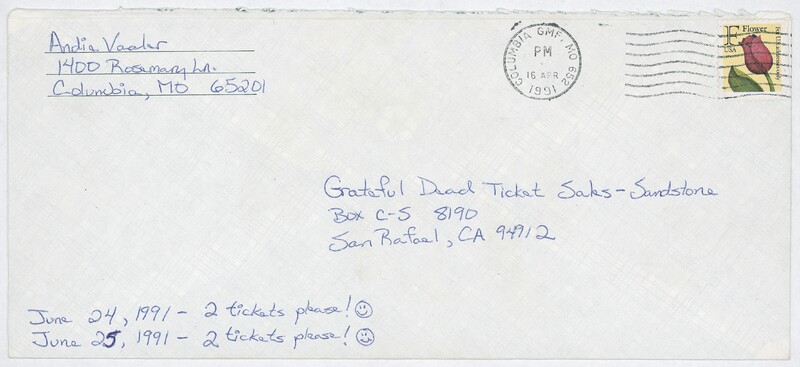 Andia Vaaler
1400 Rosemary Ln.
Columbia, MO 65201
COLUMBIA GMF, MO 652
PM
16 APR
1991
F Flower
USA
For U.S. addresses only
Grateful Dead Ticket Sales - Sandstone
Box C-S 8190
San Rafael, CA 94912
June 24, 1991 - 2 tickets please! ☺
June 25, 1991 - 2 tickets please! ☺